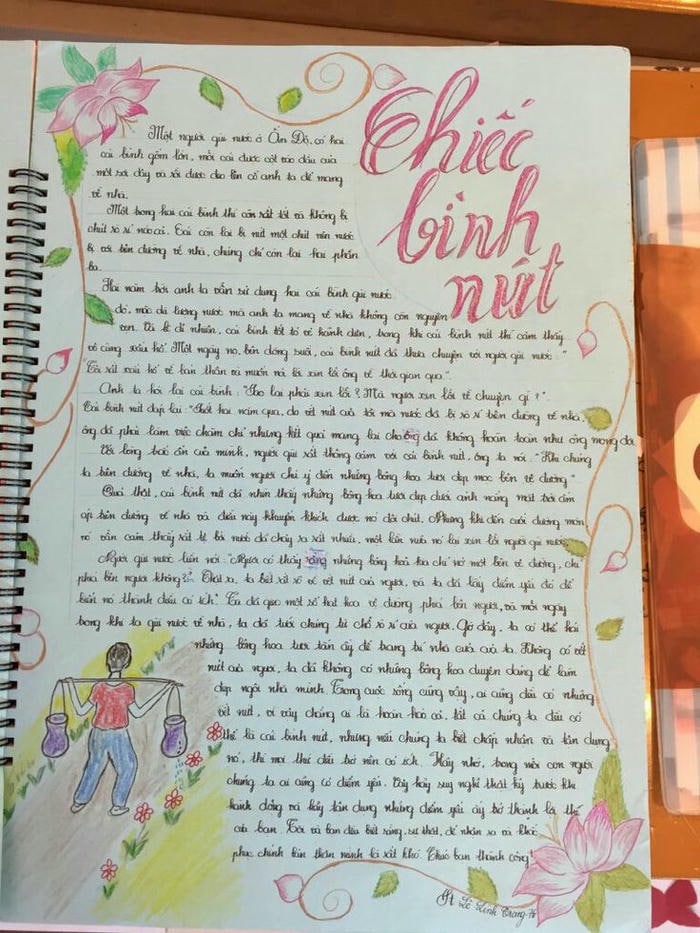 Chiếc
bình
nứt
Một người gùi nước ở Ấn Độ, có hai
cái bình gốm lớn, mỗi cái được cột vào đầu của
một sợi dây và rồi được đeo lên cổ anh ta để mang
về nhà.
Một trong hai cái bình thì còn rất tốt và không bị
chút rò rỉ nào cả. Cái còn lại bị nứt một chút nên nước
bị rơi trên đường về nhà, chúng chỉ còn lại hai phần
ba.
Hai năm trời anh ta vẫn sử dụng hai cái bình gùi nước
đó, mặc dù lượng nước mà anh ta mang về nhà không còn nguyên
vẹn. Và lẽ dĩ nhiên, cái bình tốt tỏ vẻ hãnh diện, trong khi cái bình nứt thì cảm thấy
vô cùng xấu hổ. Một ngày nọ, bên dòng suối, cái bình nứt đã thưa chuyện với người gùi nước: "
"Tôi rất xấu hổ về bản thân và muốn nói lời xin lỗi ông về thời gian qua".
Anh ta hỏi lại cái bình: "Sao lại phải xin lỗi? Mà ngươi xin lỗi về chuyện gì?".
Cái bình nứt đáp lại: "Suốt hai năm qua, do vết nứt của tôi mà nước đã bị rò rỉ trên đường về nhà,
ông đã phải làm việc chăm chỉ nhưng kết quả mang lại cho ông đã không hoàn toàn như ông mong đợi
Với lòng trắc ẩn của mình, người gùi rất thông cảm với cái bình nứt, ông ta nói: "Khi chúng
ta trên đường về nhà, ta muốn ngươi chú ý đến những bông hoa tươi đẹp mọc bên vệ đường"
Quả thật, cái bình nứt đã nhìn thấy những bông hoa tươi đẹp dưới ánh nắng mặt trời ấm
áp trên đường về nhà và điều này khuyến khích được nó đôi chút. Nhưng khi đến cuối đường mòn
nó vẫn cảm thấy rất tệ bởi nước đã chảy ra rất nhiều, một lần nữa nó lại xin lỗi người gùi nước
Người gùi nước liền nói: "Ngươi có thấy rằng những bông hoa kia chỉ nở một bên vệ đường, chỉ
phía bên ngươi không?". Thật ra, ta biết rất rõ về vết nứt của ngươi, và ta đã lấy điểm yếu đó để
biến nó thành điều có ích". Ta đã gieo một số hạt hoa về đường phía bên ngươi, và mỗi ngày
trong khi ta gùi nước về nhà, ta đã tưới chúng từ chỗ rò rỉ của ngươi. Giờ đây, ta có thể hái
những bông hoa tươi tắn ấy để trang trí nhà cửa của ta. Không có vết
nứt của ngươi, ta đã không có những bông hoa duyên dáng để làm
đẹp ngôi nhà mình. Trong cuộc sống cũng vậy, ai cũng đều có những
vết nứt, vì vậy chẳng ai là hoàn hảo cả, tất cả chúng ta đều có
thể là cái bình nứt, nhưng nếu chúng ta biết chấp nhận và tận dụng
nó, thì mọi thứ đều trở nên có ích. Hãy nhớ, trong mỗi con người
chúng ta ai cũng có điểm yếu. Vậy hãy suy nghĩ thật kỹ trước khi
hành động và hãy tận dụng những điểm yếu ấy trở thành lợi thế
của bạn. Tôi và bạn đều biết rằng, sự thật, để nhận ra và khắc
phục chính bản thân mình là rất khó. Chúc bạn thành công!
Lê Linh Trang